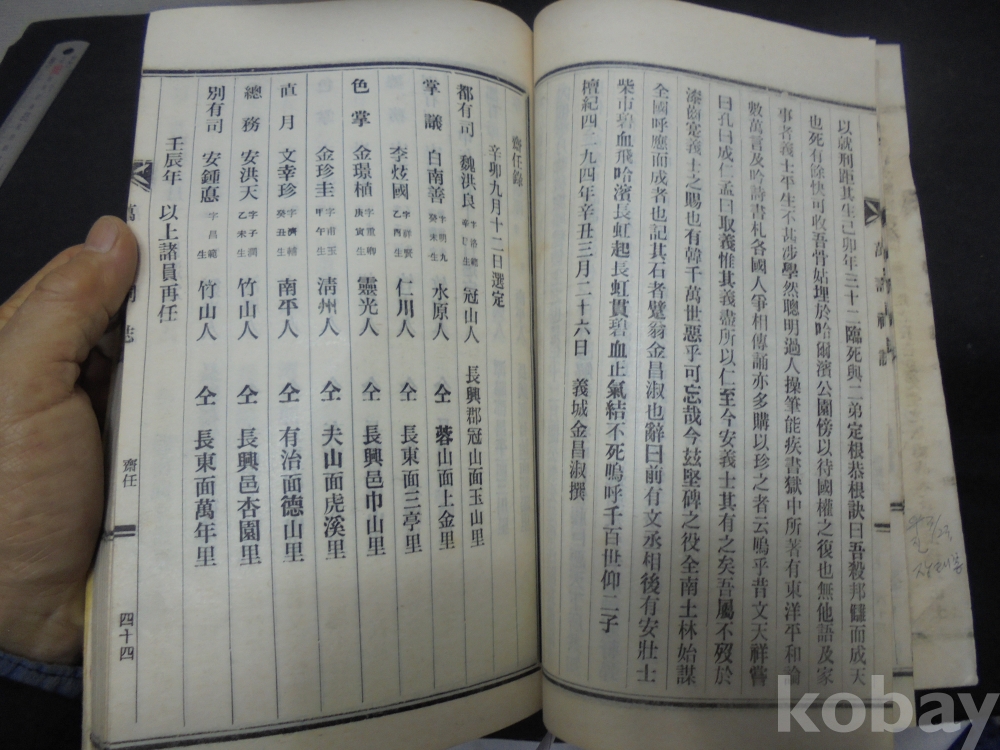 以就刑距其生己卯年三十二臨死與二弟定根恭根訣曰吾殺邦讎而成天
也死有餘快可收吾骨姑埋於哈爾濱公園傍以待國權之復也無他語及家
事者義士平生不甚涉學然聰明過人操筆能疾書獄中所著有東洋平和論
數萬言及吟詩書札各國人爭相傳誦亦多購以珍之者云嗚乎昔文天祥嘗
曰孔曰成仁孟曰取義惟其義盡所以仁至今安義士其有之矣吾屬不歿於
漆齒寔義士之賜也有韓千萬世惡乎可忘哉今玆堅碑之役全南士林始謀
全國呼應而成者也記其石者躄翁金昌淑也辭曰前有文丞相後有安壯士
柴市碧血飛哈濱長虹起長虹貫碧血止氣結不死嗚呼千百世仰二子
檀紀四二九四年辛丑三月二十六日 義城金昌淑撰
齋任錄
辛卯九月十二日選定
都有司 魏洪良 冠山人 長興郡冠山面玉山里
掌議 白南善 癸未生 水原人 仝 蓉山面上金里
李 國 乙酉生 仁川人 仝 長東面三亭里
色掌 金璟植 字重卿 庚寅生 靈光人 仝 長興邑巾山里
金珍圭 字南玉 甲午生 清州人 仝 夫山面虎溪里
直月 文幸珍 字濟補 癸丑生 南平人 仝 有治面德山里
總務 安洪天 字子潤 乙未生 竹山人 仝 長興邑杏園里
別有司 安鍾悳 字昌範 生 竹山人 仝 長東面萬年里
壬辰年 以上諸員再任
萬 誌 齋任 四十四
kobay